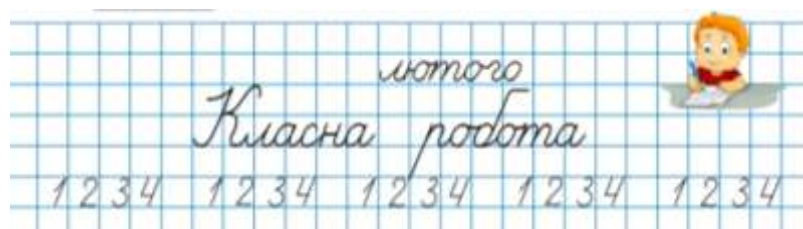 лютого
Класна робота
1 2 3 4 1 2 3 4 1 2 3 4 1 2 3 4 1 2 3 4